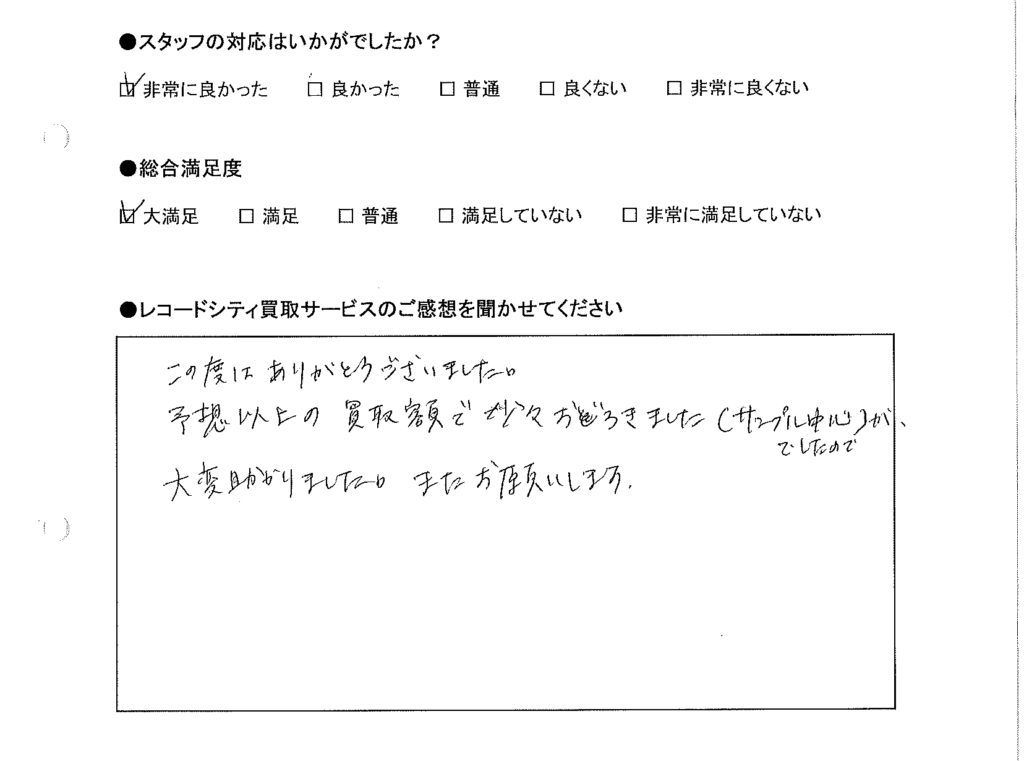 ●スタッフの対応はいかがでしたか？
☑ 非常に良かった　□ 良かった　□ 普通　□ 良くない　□ 非常に良くない
●総合満足度
☑ 大満足　□ 満足　□ 普通　□ 満足していない　□ 非常に満足していない
●レコードシティ買取サービスのご感想を聞かせてください
この度は ありがとうございました。
予想以上の 買取額で 少々 おどろきました (サンプル中心)が、
でしたので
大変助かりました。 また お願いします.